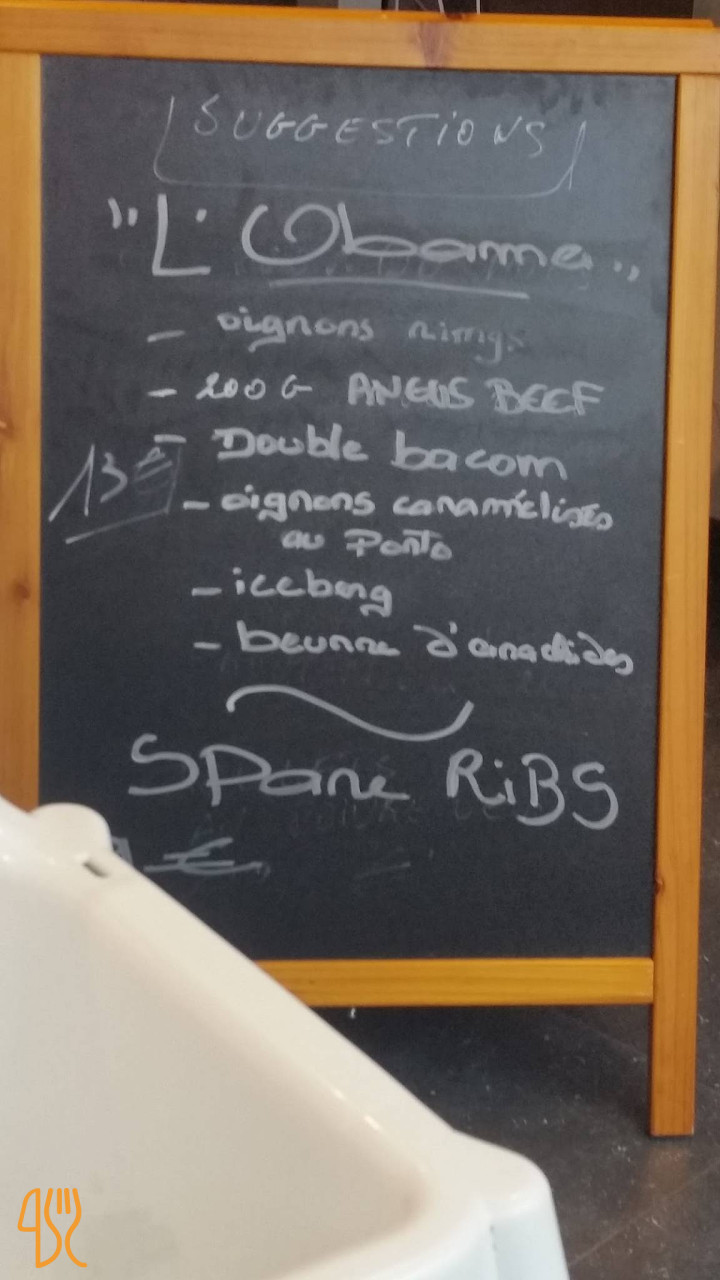 SUGGESTIONS
"L'Obama"
- oignons rings
- 200 G ANGUS BEEF
- Double bacon
13€
- oignons caramélisés
au Porto
- iceberg
- beurre d'arachides
Spare RiBS
€